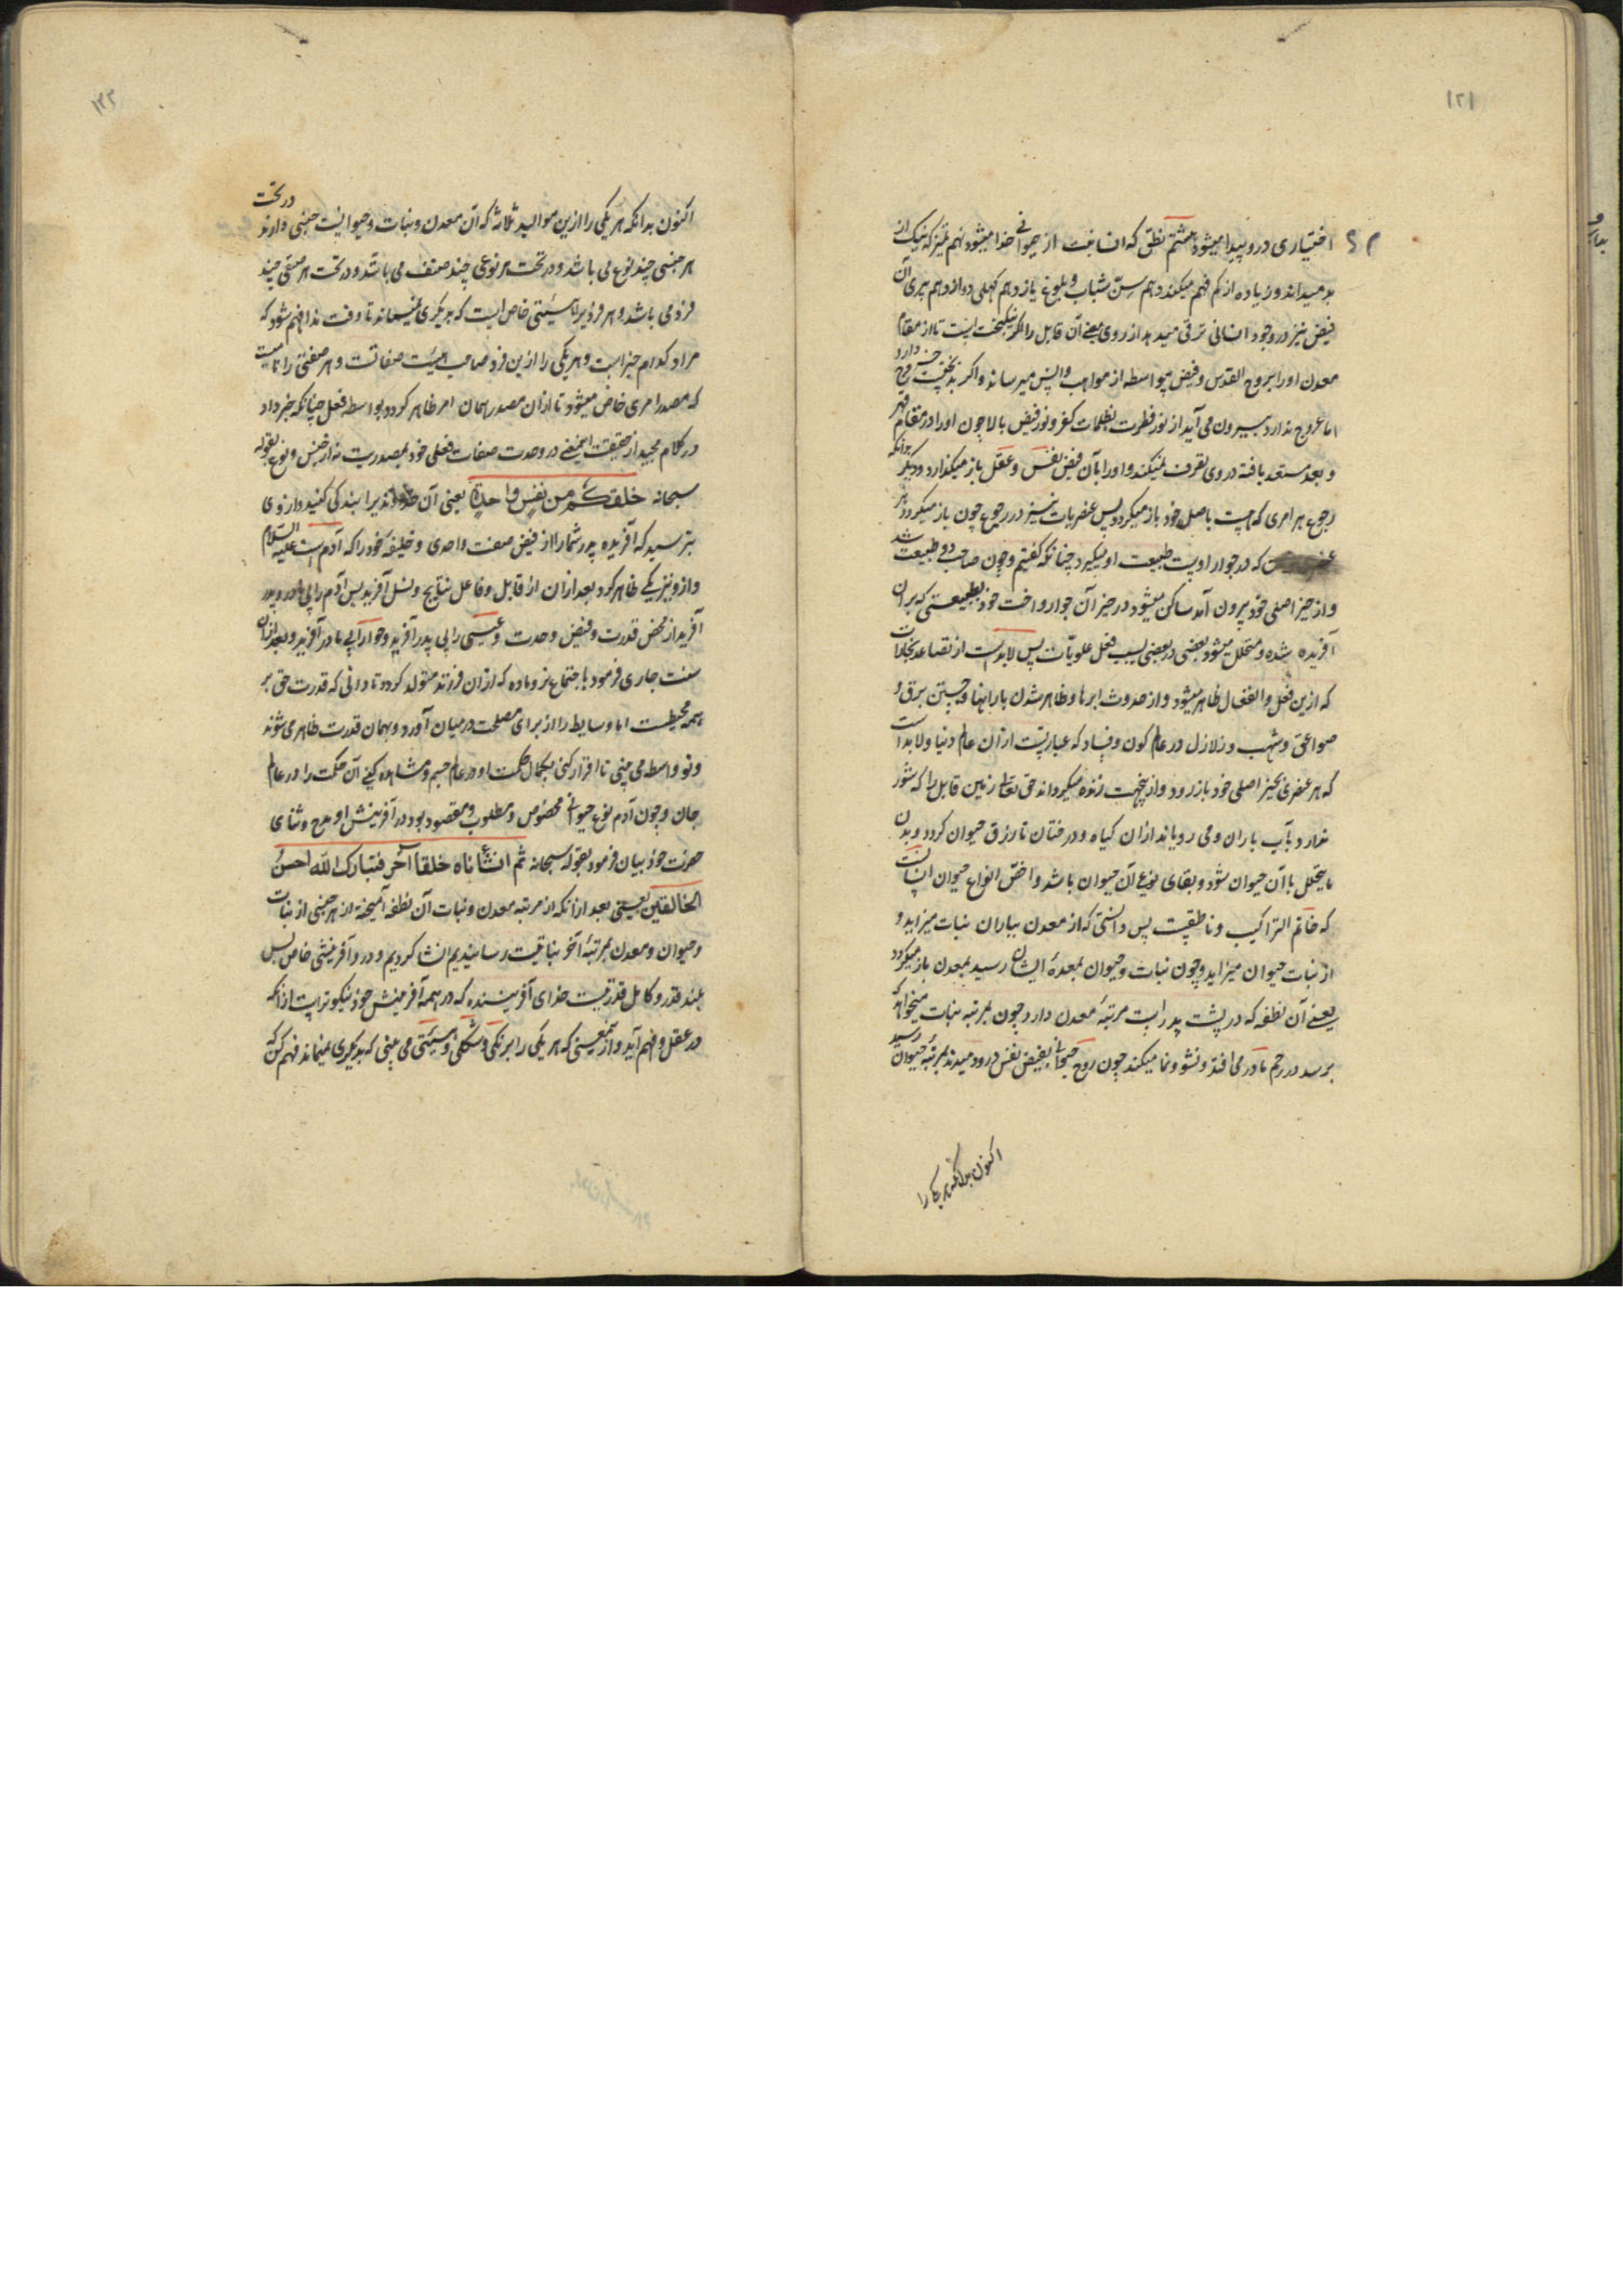 ۱۲۱
اختیاری درو پیدا میشود هشتم نطق که انسانیت از حیوانی جدا میشود نهم تمیز که نیک از
بد میداند و زیاده از کم فهم میکند دهم سن شباب و بلوغ یازدهم کهلی دوازدهم پیری آن
فیض نیز در وجود انسانی ترقی میدهد از روی معنی آن قابل را اگر نیکبخت است تا از مقام
معدن او را بروح القدس و فیض بیواسطه از مواهب واپس میرساند و اگر بدبختیست روح
اما عروج ندارد بیرون می آید از نور فطرت بظلمات کفر و نور فیض بالا چون او را در مقام قهر
و بعد مستعد یافته در وی تصرف نمیکند و او را بآن فیض نفس و عقل باز میگذارد و دیگر بدانکه
رجوع هر امری که هست باصل خود باز میگردد پس عنصریات نیز در رجوع چون باز میگردد هر
که در جوار اویست طبیعت او میگیرد چنانکه گفتیم و چون صاحب دو طبیعت شد
و از حیز اصلی خود بیرون آمد ساکن میشود در حیز آن جوار و اخت خود بطبیعتی که بر آن
آفریده شده و متحلل میشود بعضی در بعضی بسبب فعل علویات پس لابدست از تصاعد بخارات
که ازین فعل و انفعال ظاهر میشود و از حدوث ابرها و ظاهر شدن بارانها و جستن برق و
صواعق و شهب و زلازل در عالم کون و فساد که عبارتست از آن عالم دنیا و لابد است
که هر عنصری بحیز اصلی خود باز رود و از ینجهت زنده میگرداند حق تعالی زمین قابل را که شور
ندارد بآب باران و می رویاند از آن گیاه و درختان تا رزق حیوان گردد و بدن
ما یتحلل با آن حیوان شود و بقای نوع آن حیوان باشد و اخص انواع حیوان انسانست
که خاتم التراکیب و ناطقیت پس دانستی که از معدن بباران نبات میزاید و
از نبات حیوان میزاید و چون نبات و حیوان بمعدهٔ ایشان رسید بمعدن باز میگردد
یعنی آن نطفه که در پشت پدر است مرتبهٔ معدن دارد چون بمرتبه نبات میخواهد که
برسد در رحم مادر می افتد و نشو و نما میکند چون روح حیوانی بفیض نفس درو دمیدند بمرتبهٔ حیوان رسید
اکنون بدانکه هر یکی را
۱۲۲
اکنون بدانکه هر یکی را ازین موالید ثلاثه که آن معدن و نبات و حیوانیت جنسی دارند در تحت
هر جنسی چند نوع می باشد و در تحت هر نوعی چند صنف می باشد و در تحت هر صنفی چند
فرد می باشد و هر فردی را هیئتی خاص است که بدیگری نمیماند تا وقت ندا فهم شود که
مراد کدام چیز است و هر یکی را ازین فرد صاحب هیئت صفاتست و هر صفتی را تاثیریست
که مصدر امری خاص میشود تا از آن مصدر همان امر ظاهر گردد بواسطه فعل چنانکه خبر داد
در کلام مجید از حقیقت اینمعنی در وحدت صفات فعلی خود بمصدریت نه از جنس و نوع بقوله
سبحانه خلقکم من نفس واحدة یعنی آن خداوندیرا بندگی کنید و از وی
بترسید که آفریده پدر شما را از فیض صفت واحدی و خلیفهٔ خود را که آدم است علیه السلام
و از و نیز یکی ظاهر کرد بعد از آن از قابل و فاعل نتایج و نسل آفرید پس آدم را بی مادر و پدر
آفرید از محض قدرت و فیض وحدت و عیسی را بی پدر آفرید و حوا را بی مادر آفرید و بعد از آن
سنت جاری فرمود باجتماع نر و ماده که از آن فرزند متولد گردد تا دانی که قدرت حق بر
همه محیطست اما وسایط را از برای مصلحت در میان آورد و بهمان قدرت ظاهر می شوند
و تو واسطه می بینی تا اقرار کنی بکمال حکمت او در عالم جسم و مشاهده کنی آن حکمت را در عالم
جان و چون آدم نوع حیوانی مخصوص و مطلوب و مقصود بود در آفرینش او مدح و ثنای
حضرت خود بیان فرمود بقوله سبحانه ثم انشأناه خلقا آخر فتبارک الله احسن
الخالقین یعنی بعد از آنکه از مرتبه معدن و نبات آن نطفه آمیخته از هر جنسی از نبات
و حیوان و معدن بمرتبهٔ آخر نباتیت رسانیدیم انشا کردیم و درو آفرینشی خاص پس
بلند قدر و کامل قدرتیست خدای آفریننده که در همه آفرینش خود نیکوترست از آنکه
در عقل و فهم آید و از بهر معنی که هر یکی را برنگی و شکلی و هیئتی می بینی که بدیگری نمیماند فهم کن که